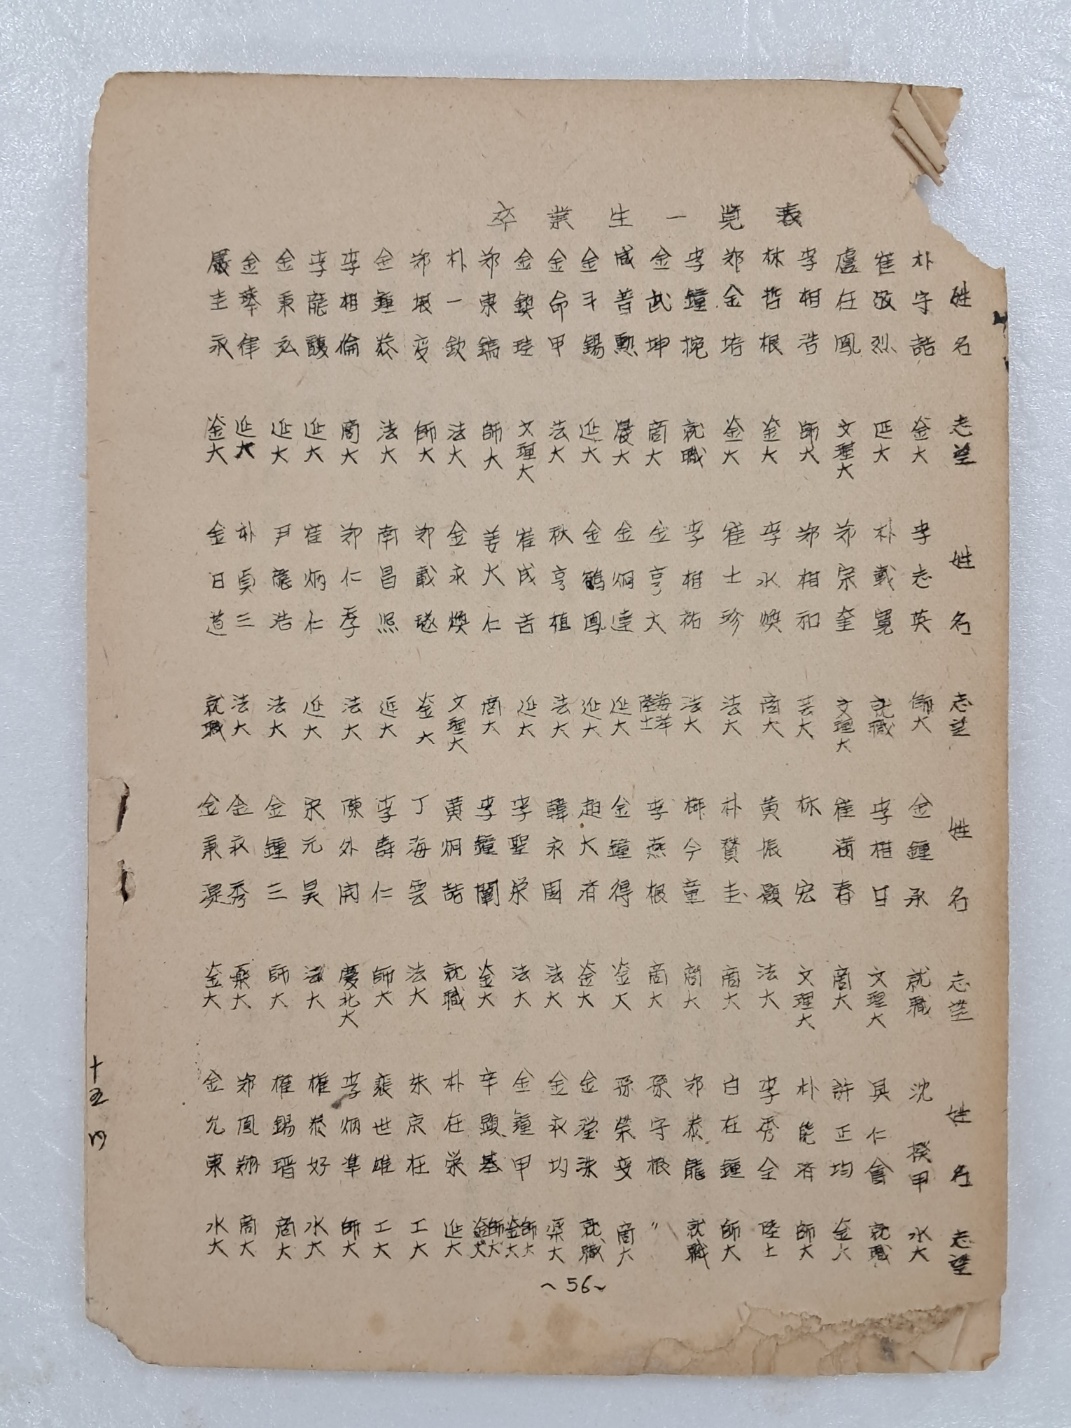 卒業生一覧表
姓名 志望
朴守誥 釜大
崔敬烈 延大
盧在鳳 文理大
李相浩 師大
林哲根 釜大
鄭金培 釜大
李鐘捥 就職
金武坤 商大
咸普勲 農大
金斗錫 延大
金命甲 法大
金鍈珪 文理大
鄭東鎬 師大
朴一欽 法大
鄭変 師大
金鍾泰 法大
李相倫 商大
李龍馥 延大
金秉玄 延大
金律 延大
嚴圭永 釜大
姓名 志望
李志英 師大
朴戴寬 就職
鄭宗奎 文理大
鄭相和 芸大
李水煥 商大
崔士珍 法大
李相祐 法大
金亨大 海洋 陸士
金炯達 延大
金鶴鳳 延大
秋亨植 法大
崔成吉 延大
姜大仁 商大
金永煥 文理大
鄭戴璲 釜大
南昌熙 延大
鄭仁季 法大
崔炳仁 延大
尹龍浩 法大
朴貞三 法大
金日道 就職
姓名 志望
金鍾永 就職
李相甘 文理大
崔満春 商大
林宏 文理大
黄振顕 法大
朴賛圭 商大
柳今童 商大
李燕根 商大
金鐘得 釜大
趙大済 釜大
韓永国 法大
李聖栄 法大
李鐘蘭 釜大
黄炯喆 就職
丁海雲 法大
李壽仁 師大
陳外閏 慶北大
宋元昊 法大
金鍾三 師大
金永秀 薬大
金秉湜 釜大
姓名 志望
沈揆甲 水大
呉仁會 就職
許正均 釜大
朴能済 師大
李秀全 陸士
白在鍾 師大
鄭泰龍 就職
孫守根 〃
孫榮変 商大
金瑩洙 就職
金永均 薬大
金鐘甲 師大 釜大
辛顕基 師大 釜大
朴在栄 延大
朱京在 工大
裴世雄 工大
李炳準 師大
権泰好 水大
権錫瑨 商大
鄭鳳翔 商大
金九東 水大
~56~